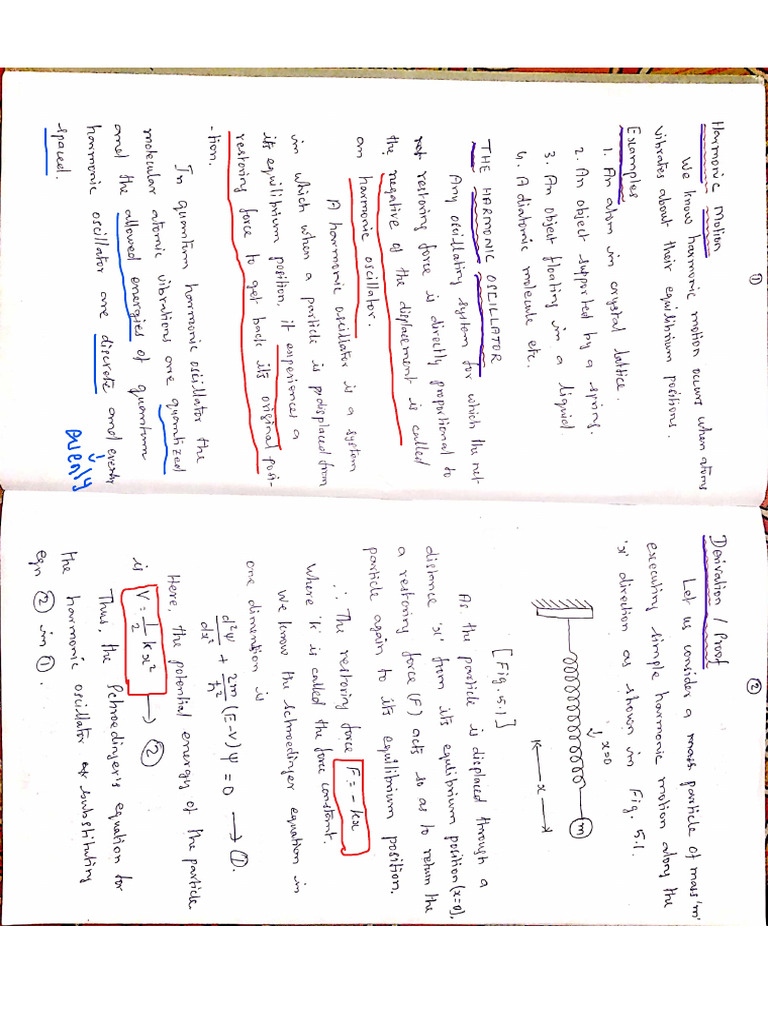 ①
Harmonic Motion
We know harmonic motion occurs when atoms
vibrates about their equilibrium positions.
Examples
1. An atom in crystal lattice.
2. An object supported by a spring.
3. An object floating in a liquid
4. A diatomic molecule etc.
THE HARMONIC OSCILLATOR
Any oscillating system for which the net
restoring force is directly proportional to
the negative of the displacement is called
an harmonic oscillator.
A harmonic oscillator is a system
in which when a particle is displaced from
its equilibrium position, it experiences a
restoring force to get back its original posi-
-tion.
In quantum harmonic oscillator the
molecular atomic vibrations are quantized
and the allowed energies of quantum
harmonic oscillator are discrete and evenly
spaced.
②
Derivation / Proof
Let us consider a particle of mass 'm'
executing simple harmonic motion along the
'x' direction as shown in Fig. 5.1.
x=0
m
x
[Fig. 5.1]
As the particle is displaced through a
distance 'x' from its equilibrium position (x=0),
a restoring force (F) acts so as to return the
particle again to its equilibrium position.
∴ The restoring force F = - kx
Where 'k' is called the force constant.
We know the schroedinger equation in
one dimention is
d²ψ/dx² + 2m/ħ² (E-V) ψ = 0 → ①.
Here, the potential energy of the particle
is V = 1/2 k x² → ②
Thus, the Schroedinger's equation for
the harmonic oscillator substituting
eqn ② in ①.